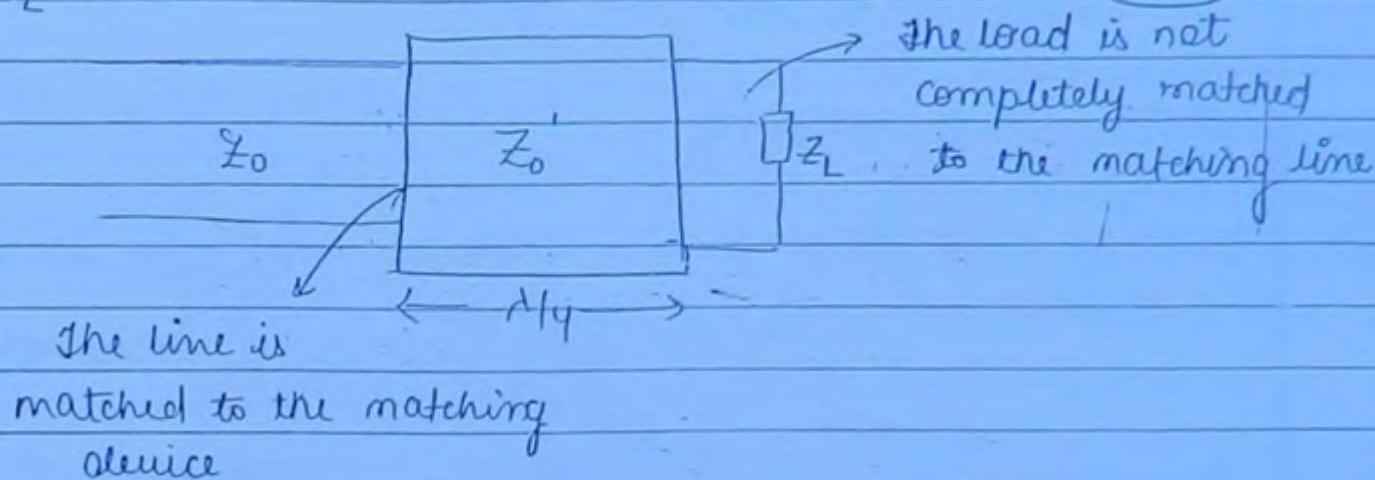 The load is not
completely matched
Z₀ Z₀' Z_L to the matching line
λ/4
The line is
matched to the matching
device